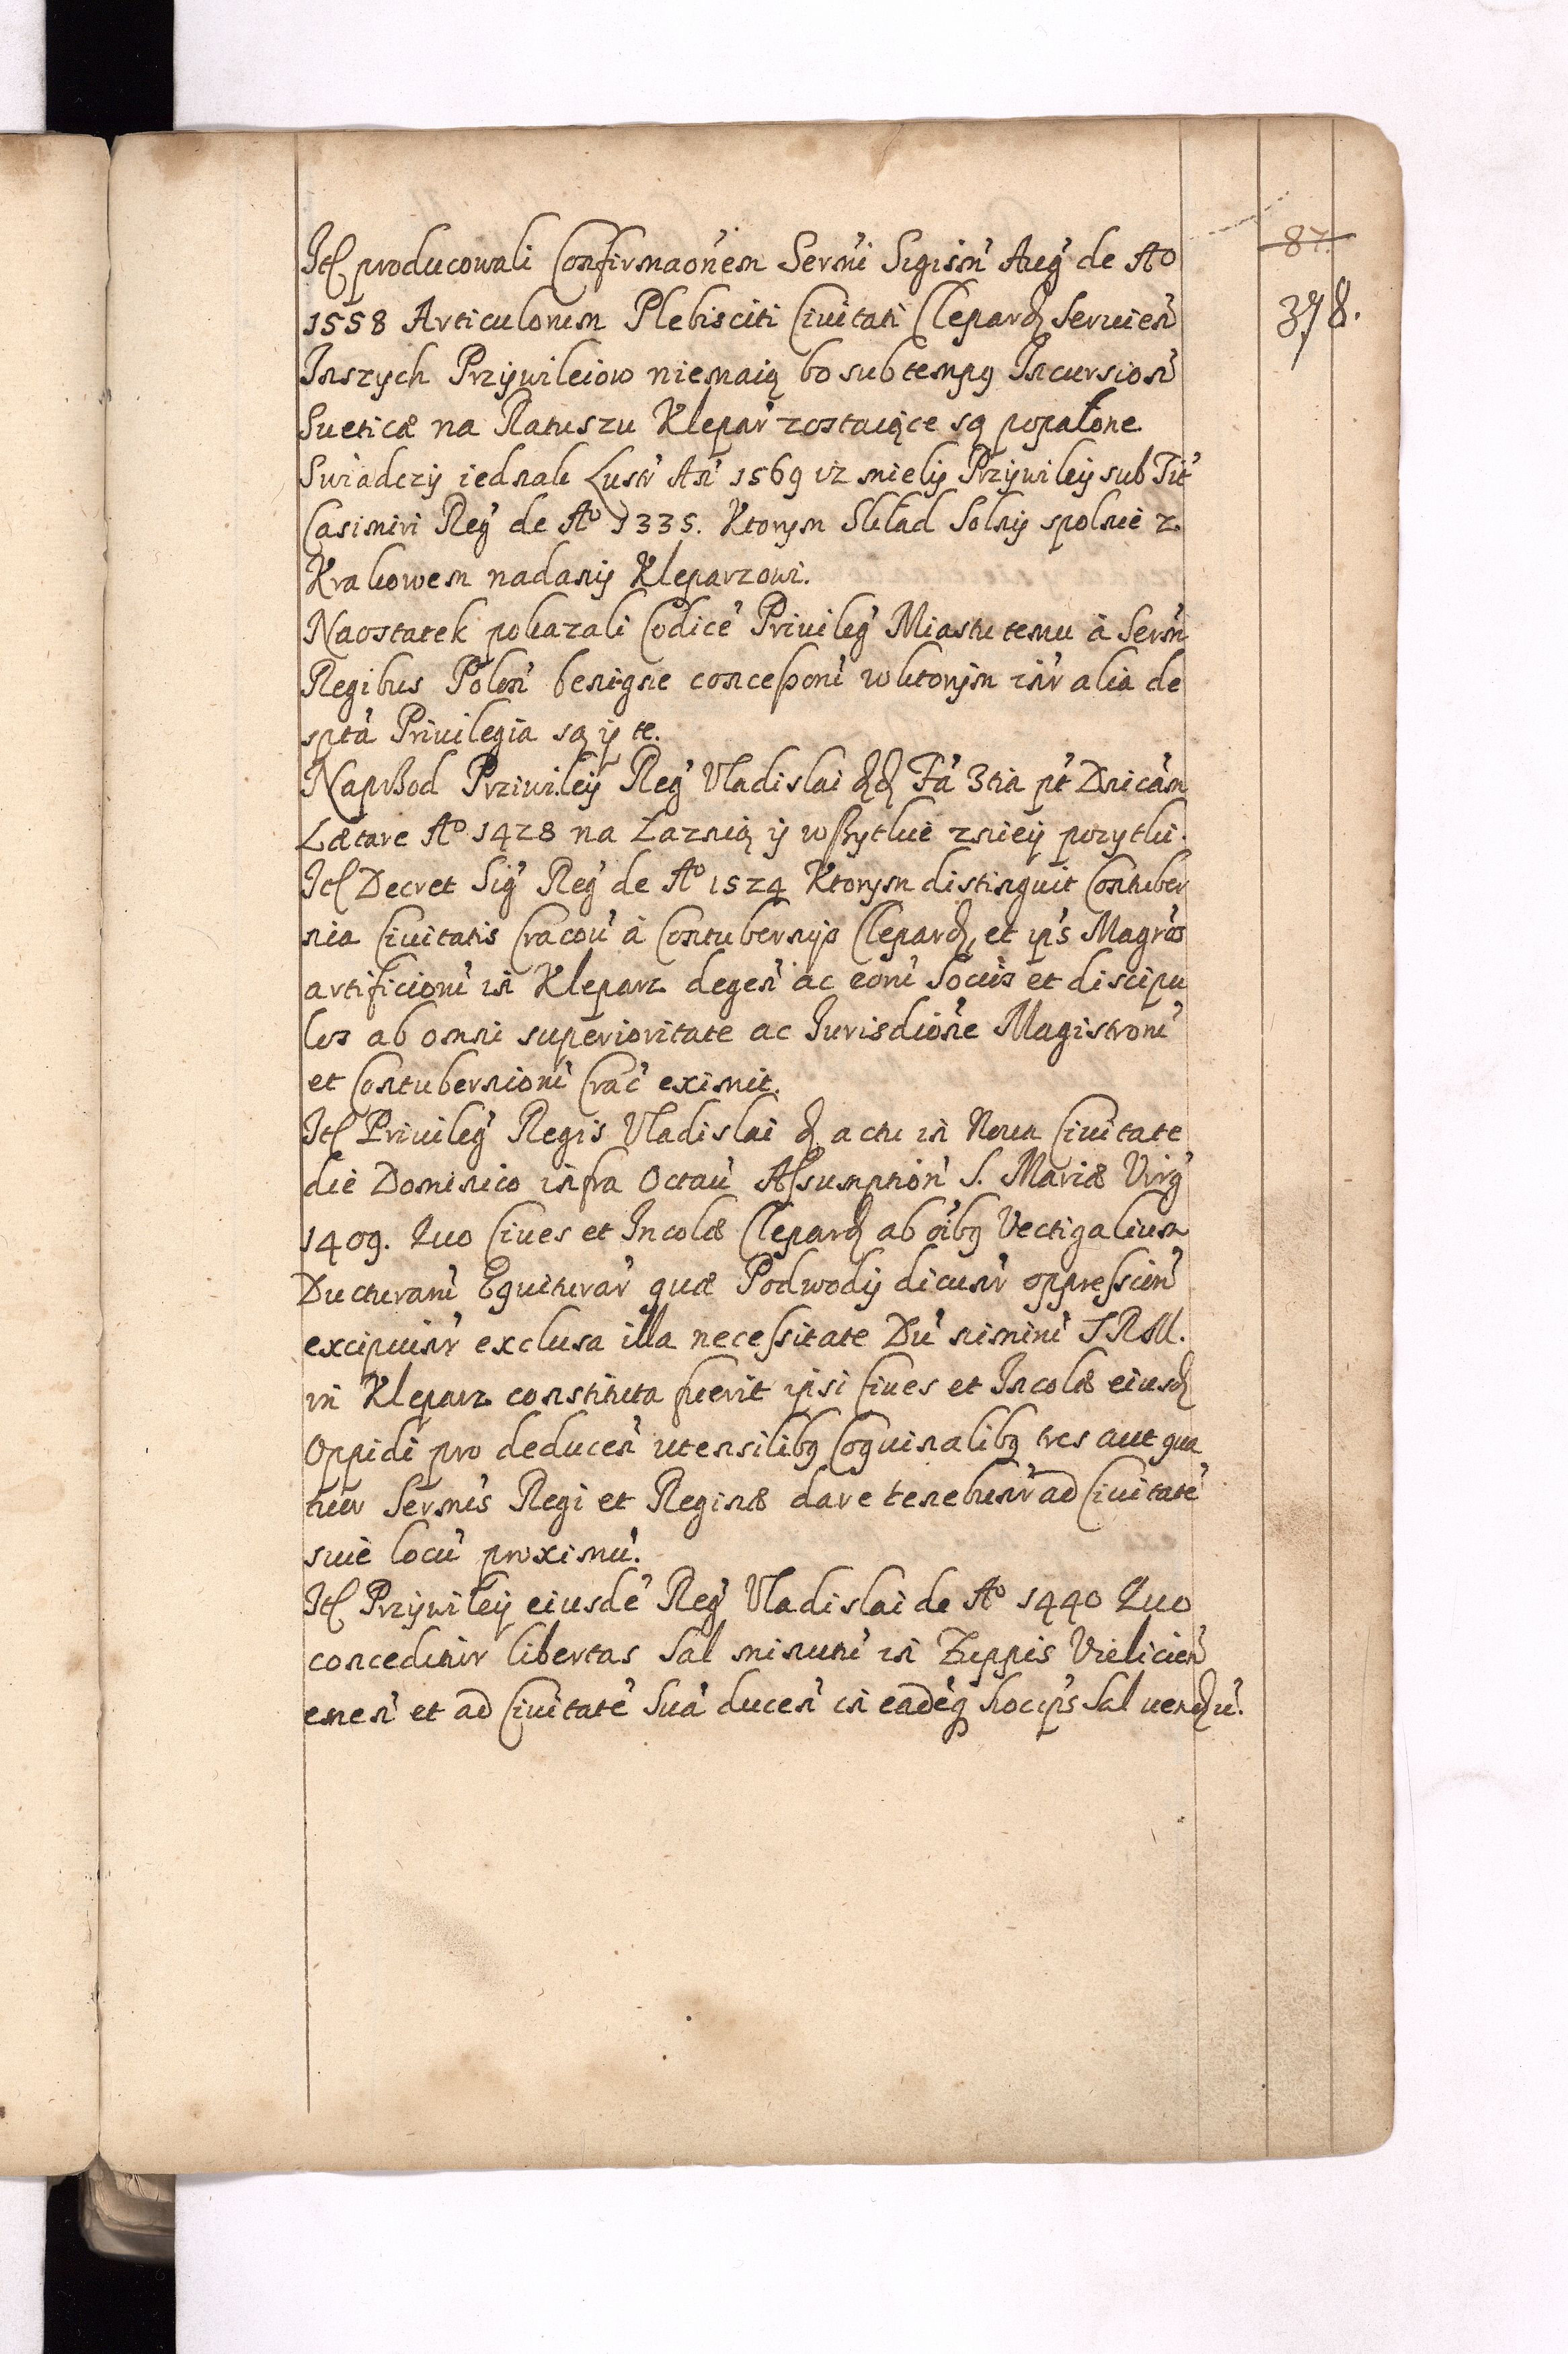 87.
378.
Itẽ producowali Confirmaoñem Serñi Sigism̃ Aug̃ de A°
1558 Articulorum Plebisciti Ciuitati Clepard̃ seruieñ
Inszych Przywileiow niemaią bo sub tempꝰ Incursioñ
Sueticæ na Ratuszu Klepar̃ zostaiące są popalone
Swiadczy iednak Lustr̃ Añ 1569 iz miely Przywiley sub Tit̃
Casimiri Reg̃ de A° 1335. Ktorym Skład Solny spolnie z
Krakowem nadany Kleparzowi.
Naostatek pokazali Codicẽ Priuileg̃ Miastu temu à Serm̃
Regibus Poloñ benigne conceßorũ w ktorym inr̃ alia de
spta Priuilegia są y te.
Naprßod Prziwiley Reg̃ Vladislai dd̃ Fã 3tia pt̃ Dnicam
Lætare A° 1428 na Łaznią y wßytkie zniey pozytki.
Itẽ Decret Sig̃ Reg̃ de A° 1524 Ktorym distinguit Contuber
nia Ciuitatis Cracou̇ à Contubernijs Clepard̃, et ip̃s Magrõs
artificiorũ in Kleparz degeñ ac eorũ Socios et discipu
los ab omni superioritate ac Iurisdiõne Magistrorũ
et Contuberniorũ Crac̃ eximit.
Itẽ Priuileg̃ Regis Vladislai d̃ actu in Noua Ciuitate
die Dominico infra Octau̇ Aſsumptioñ S. Mariæ Virg̃
1409. Quo Ciues et Incolæ Clepard̃ ab oĩbꝰ Vectigalium
Ducturarũ Equiturar̃ quæ Podwody dicunr̃ oppreſsioñ
excipuinr̃ exclusa illa neceſsitate Dũ nimirũ SRM.
in Kleparz constituta fuerit ipsi Ciues et Incolæ eiusd̃
Oppidi pro deduceñ utensilibꝰ Coquinalibꝰ tres aut qua
tuor Serm̃is Regi et Reginæ dare tenebunr̃ ad Ciuitatẽ
siue locũ proximũ.
Itẽ Przywiley eiusdẽ Reg̃ Vladislai de A° 1440 Quo
conceditur libertas Sal minutũ in Zuppis Vieliceñ
emeñ et ad Ciuitatẽ Suã duceñ in eadẽq̃ hoc ip̃s Sal uend̃ũ.